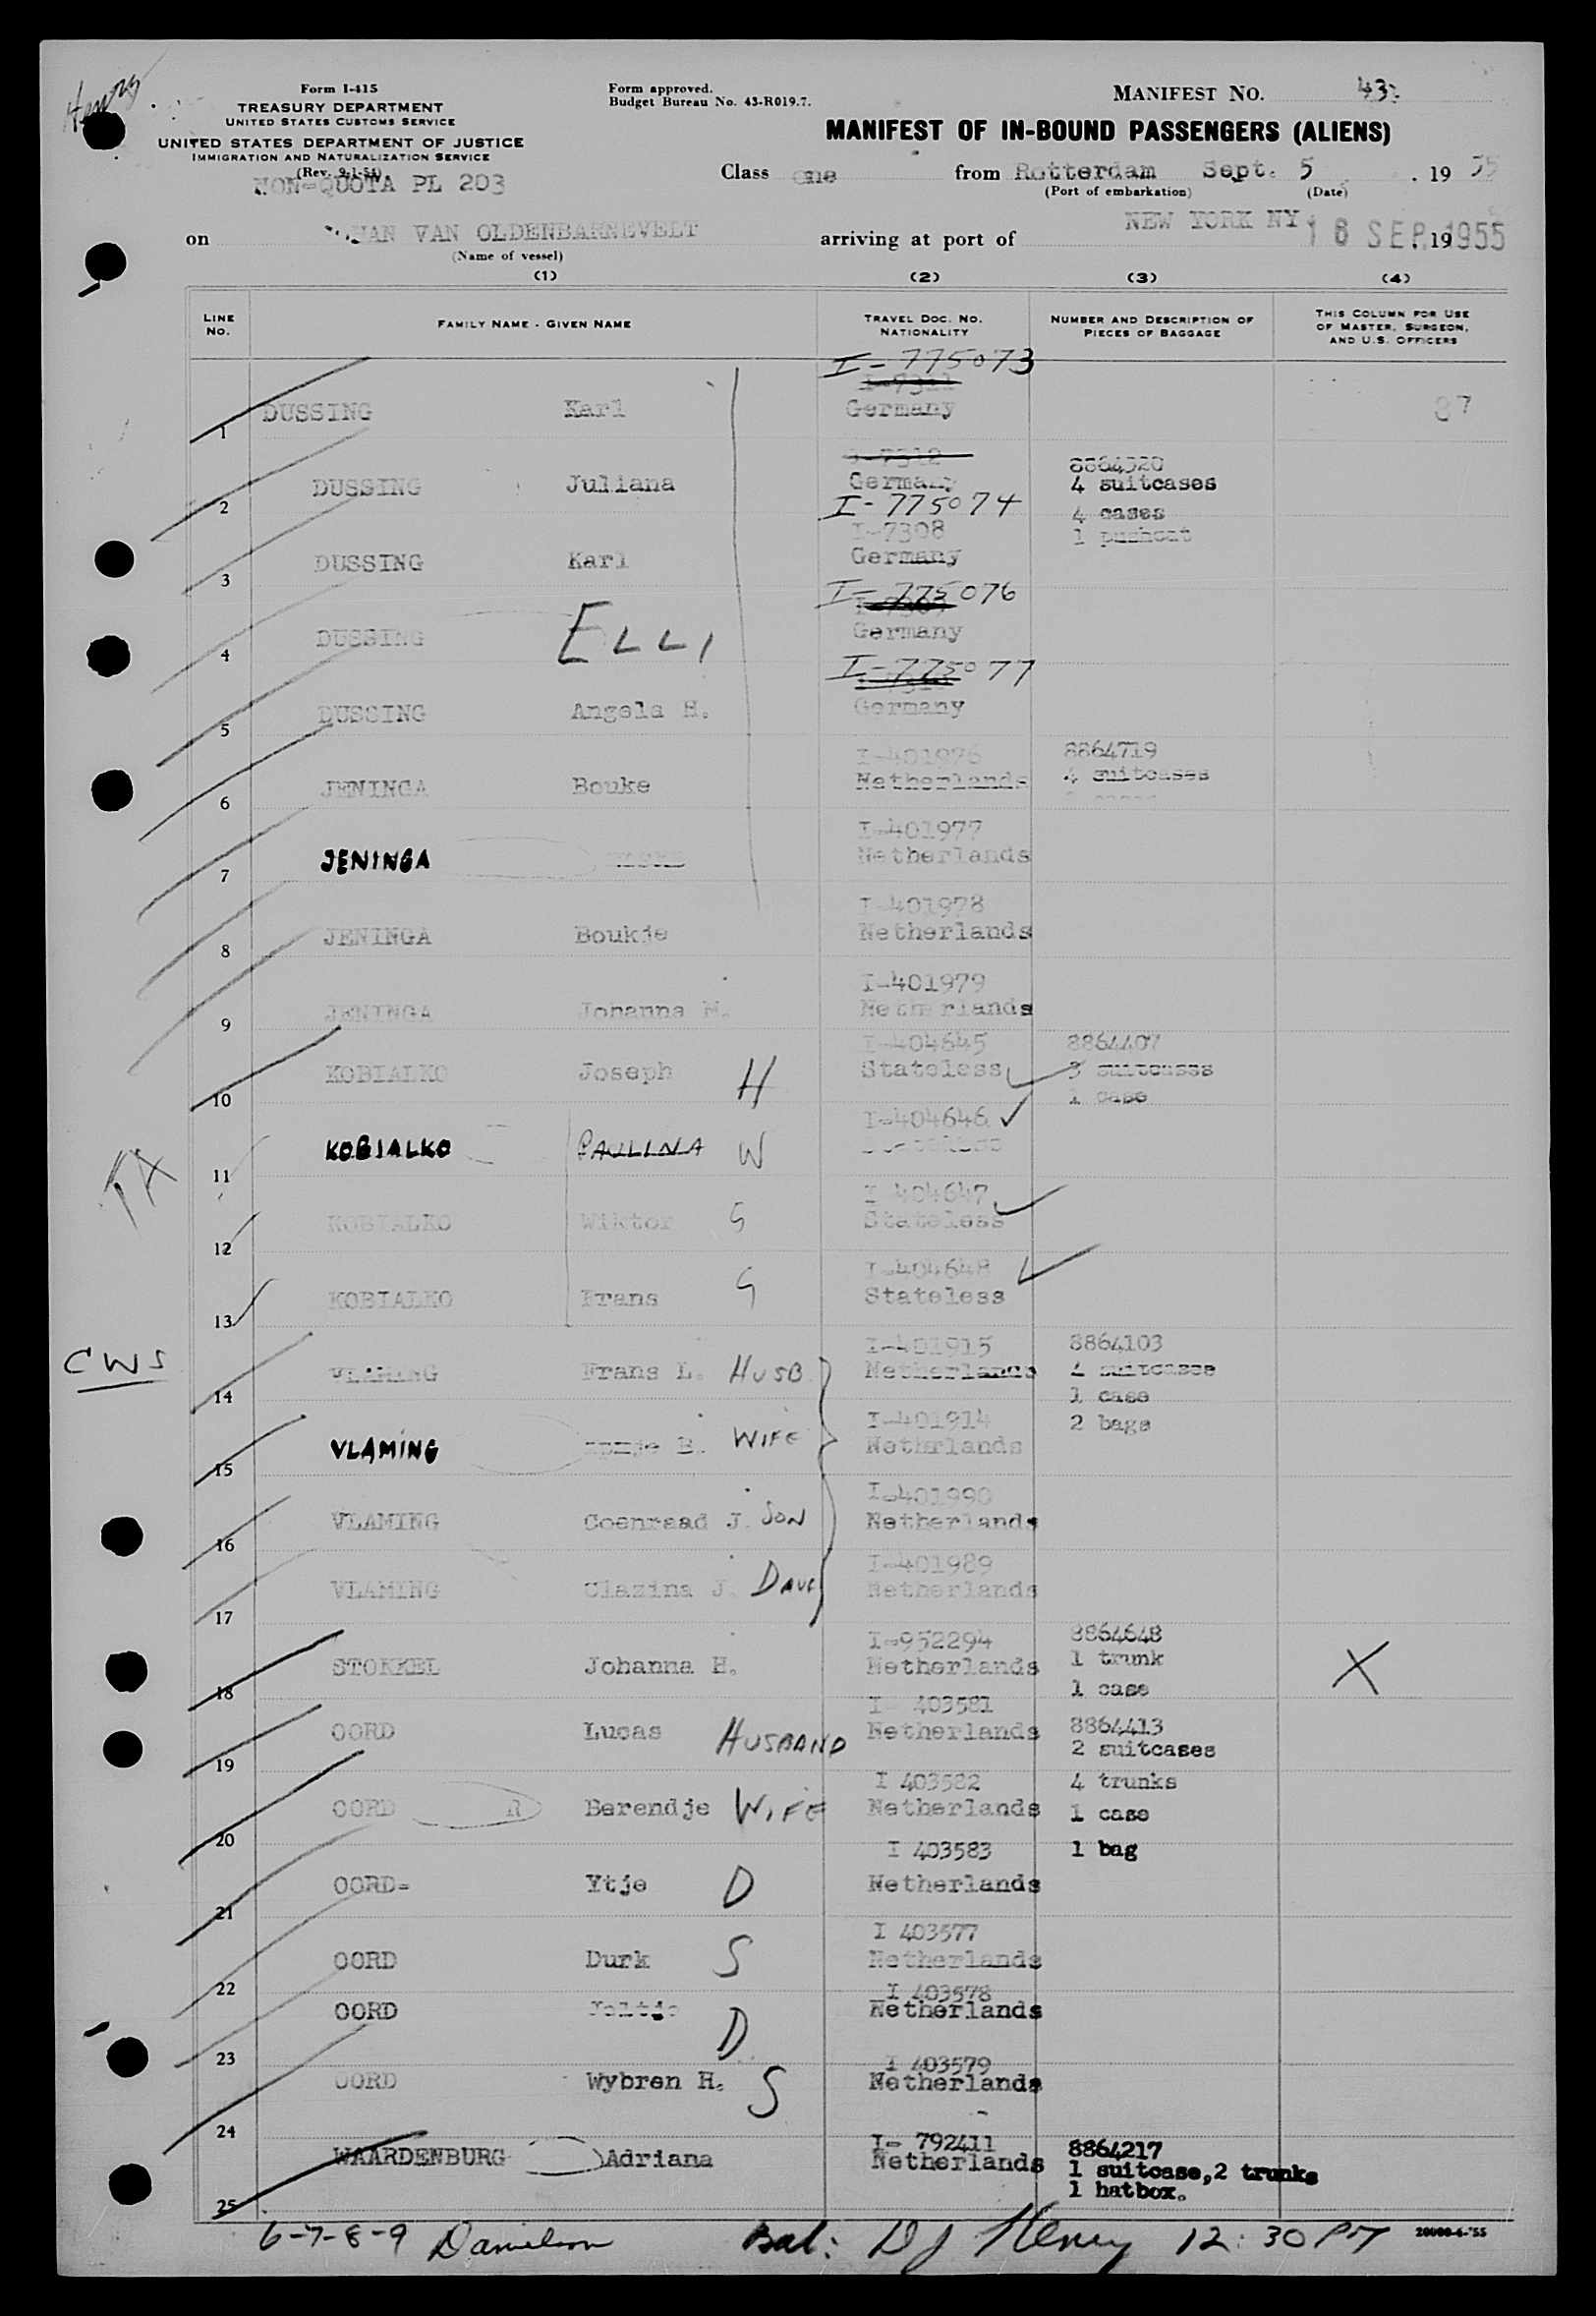 Henry
Form I-415
TREASURY DEPARTMENT
UNITED STATES CUSTOMS SERVICE
UNITED STATES DEPARTMENT OF JUSTICE
IMMIGRATION AND NATURALIZATION SERVICE
(Rev. 9-1-54)
NON-QUOTA PL 203
Form approved.
Budget Bureau No. 43-R019.7.
MANIFEST NO. 43
MANIFEST OF IN-BOUND PASSENGERS (ALIENS)
Class one from Rotterdam Sept. 5 . 19 55
(Port of embarkation) (Date)
on VAN OLDENBARNEVELT arriving at port of NEW YORK NY 16 SEP. 19 1955
(Name of vessel)
(1) (2) (3) (4)
LINE NO. FAMILY NAME - GIVEN NAME TRAVEL DOC. NO. NATIONALITY NUMBER AND DESCRIPTION OF PIECES OF BAGGAGE THIS COLUMN FOR USE OF MASTER, SURGEON, AND U.S. OFFICERS
I-775073
1 DUSSING Karl Germany 87
I-7312 8864320
2 DUSSING Juliana Germany 4 suitcases
I-775074 4 cases
I-7308 1 pushcat
3 DUSSING Karl Germany
I-775076
4 DUSSING ELLI Germany
I-775077
5 DUSSING Angela H. Germany
I-401976 8864719
6 JENINGA Bouke Netherlands 4 suitcases
I-401977
7 JENINGA Netherlands
I-401978
8 JENINGA Boukje Netherlands
I-401979
9 JENINGA Johanna M. Netherlands
I-404645 8864407
10 KOBIALKO Joseph H Stateless 3 suitcases
1 case
I-404646
11 KOBIALKO PAULINA W Stateless
TA
I-404647
12 KOBIALKO Wiktor S Stateless
I-404648
13 KOBIALKO Frans S Stateless
CWS
I-401915 8864103
14 VLAMING Frans L. HUSB Netherlands 4 suitcases
1 case
I-401914 2 bags
15 VLAMING B. WIFE Nethrlands
I-401990
16 VLAMING Coenraad J. SON Netherlands
I-401989
17 VLAMING Clazina J. DAUG Netherlands
I-952294 8864648
18 STOKKEL Johanna H. Netherlands 1 trunk X
1 case
I 403581
19 OORD Lucas HUSBAND Netherlands 8864413
2 suitcases
I 403582 4 trunks
20 OORD R Berendje WIFE Netherlands 1 case
I 403583 1 bag
21 OORD= Ytje D Netherlands
I 403577
22 OORD Durk S Netherlands
I 403578
23 OORD D Netherlands
I 403579
24 OORD Wybren H. S Netherlands
I- 792411 8864217
25 WAARDENBURG Adriana Netherlands 1 suitcase,2 trunks
1 hatbox.
6-7-8-9 Danielson Bal: DJ Henry 12:30 PM 20000-6-'55